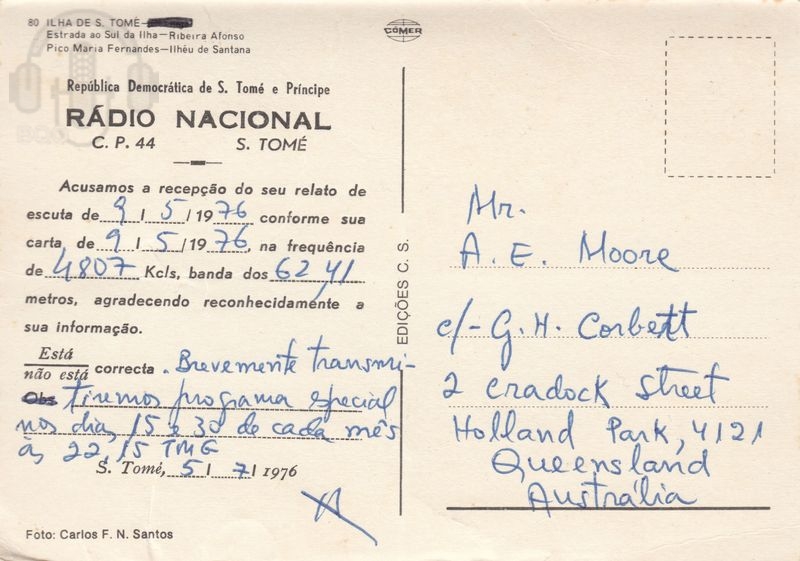 80 ILHA DE S. TOMÉ
Estrada ao Sul da Ilha—Ribeira Afonso
Pico Maria Fernandes—Ilhéu de Santana
CÓMER
República Democrática de S. Tomé e Príncipe
RÁDIO NACIONAL
C. P. 44 S. TOMÉ
Acusamos a recepção do seu relato de
escuta de 9 / 5 / 1976 conforme sua
carta de 9 / 5 / 1976, na frequência
de 4807 Kcls, banda dos 62,41
metros, agradecendo reconhecidamente a
sua informação.
Está
não está correcta. Brevemente transmi-
Obs tiremos programa especial
nos dias 15 e 30 de cada mês
às 22,15 TMG
S. Tomé, 5 / 7 / 1976
Foto: Carlos F. N. Santos
EDIÇÕES C. S.
Mr.
A. E. Moore
c/- G. H. Corbett
2 Cradock Street
Holland Park, 4121
Queensland
Austrália